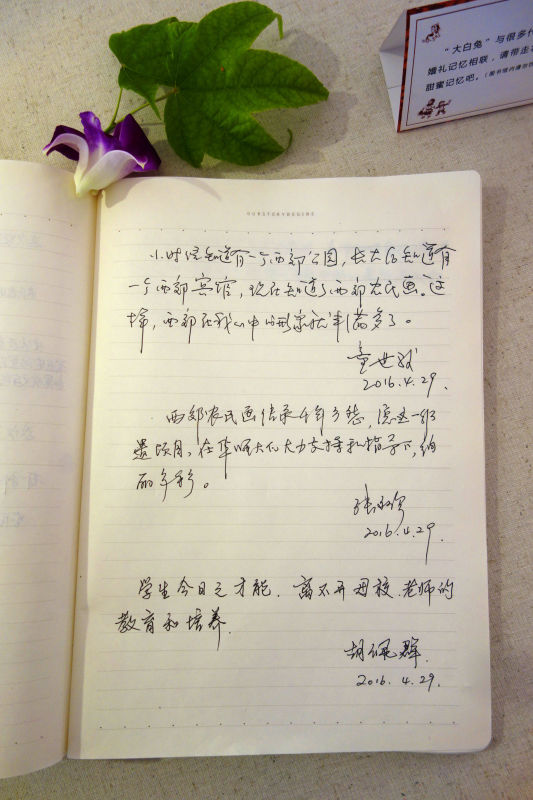 "大白兔"与很多
婚礼记忆相联，请带走
甜蜜记忆吧。
OURSTORYBEGINS
小时候知道有一个西郊公园，长大后知道有
一个西郊宾馆，现在知道了西郊农民画。这
样，西郊在我心中的形象就丰满多了。
2016.4.29.
西郊农民画传承千年乡愁，愿这一非
遗项目，在华师大的大力支持和指导下，绚
丽多彩。
2016.4.29.
学生今日之才能，离不开母校、老师的
教育和培养.
胡佩群.
2016.4.29.